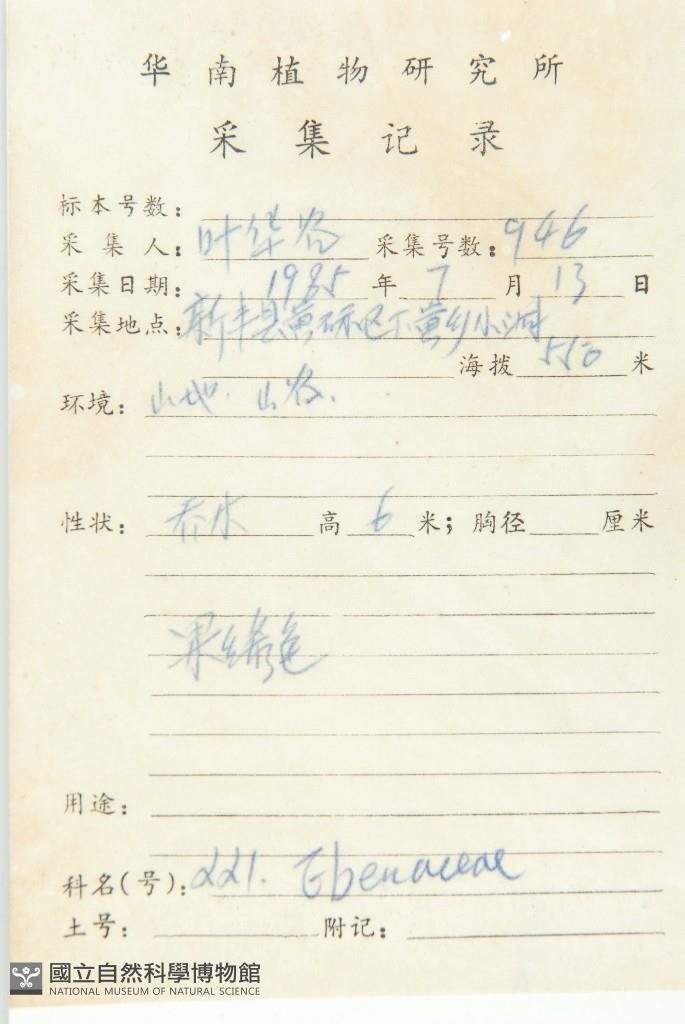 华南植物研究所
采集记录
标本号数：
采集人：叶华谷 采集号数：946
采集日期：1985年7月13日
采集地点：新丰县黄磜区下黄乡小洞
海拨550米
环境：山地．山谷．
性状：乔木 高6米；胸径 厘米
果绿色
用途：
科名(号)：221. Ebenaceae
土号： 附记：
國立自然科學博物館
NATIONAL MUSEUM OF NATURAL SCIENCE